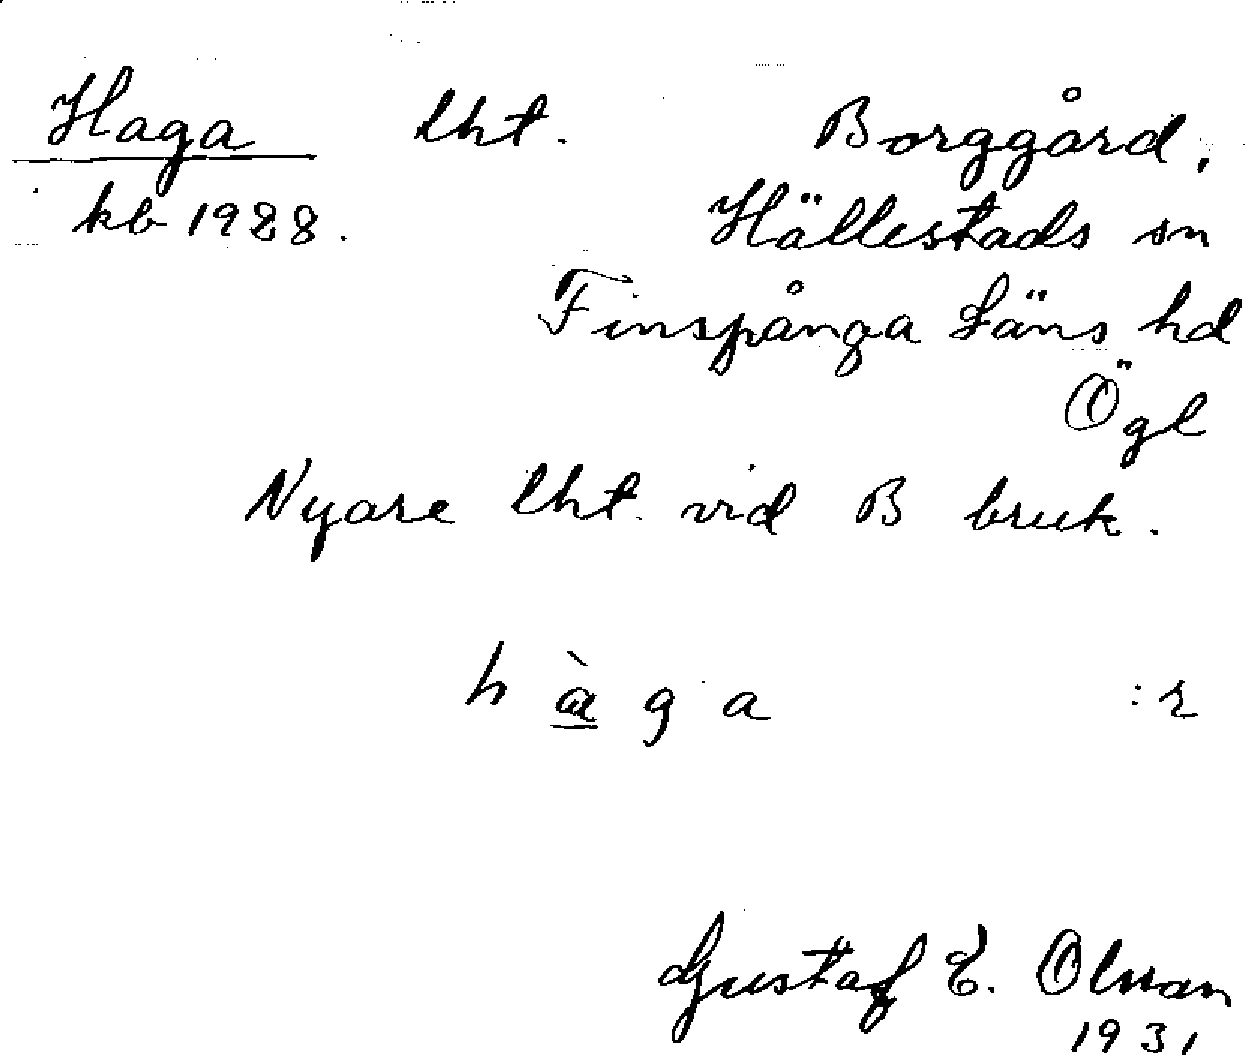 Haga lht. Borggård,
kb 1928. Hällestads sn
Finspånga Läns hd
Ögl
Nyare lht. vid B bruk.
h à g a :r
Gustaf E. Olsson
1931